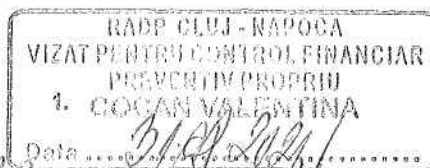 RADP CLUJ - NAPOCA
VIZAT PENTRU CONTROL FINANCIAR
PREVENTIV PROPRIU
1. COCAN VALENTINA
Data